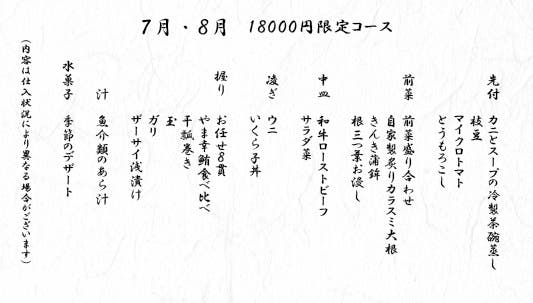 7月・8月 18000円限定コース
先付 カニとスープの冷製茶碗蒸し
枝豆
マイクロトマト
とうもろこし
前菜 前菜盛り合わせ
自家製炙りカラスミ大根
きんき蒲鉾
根三つ葉お浸し
中皿 和牛ローストビーフ
サラダ菜
凌ぎ ウニ
いくら子丼
握り お任せ8貫
やま幸鮪食べ比べ
干瓢巻き
玉
ガリ
ザーサイ浅漬け
汁 魚介類のあら汁
水菓子 季節のデザート
(内容は仕入状況により異なる場合がございます)